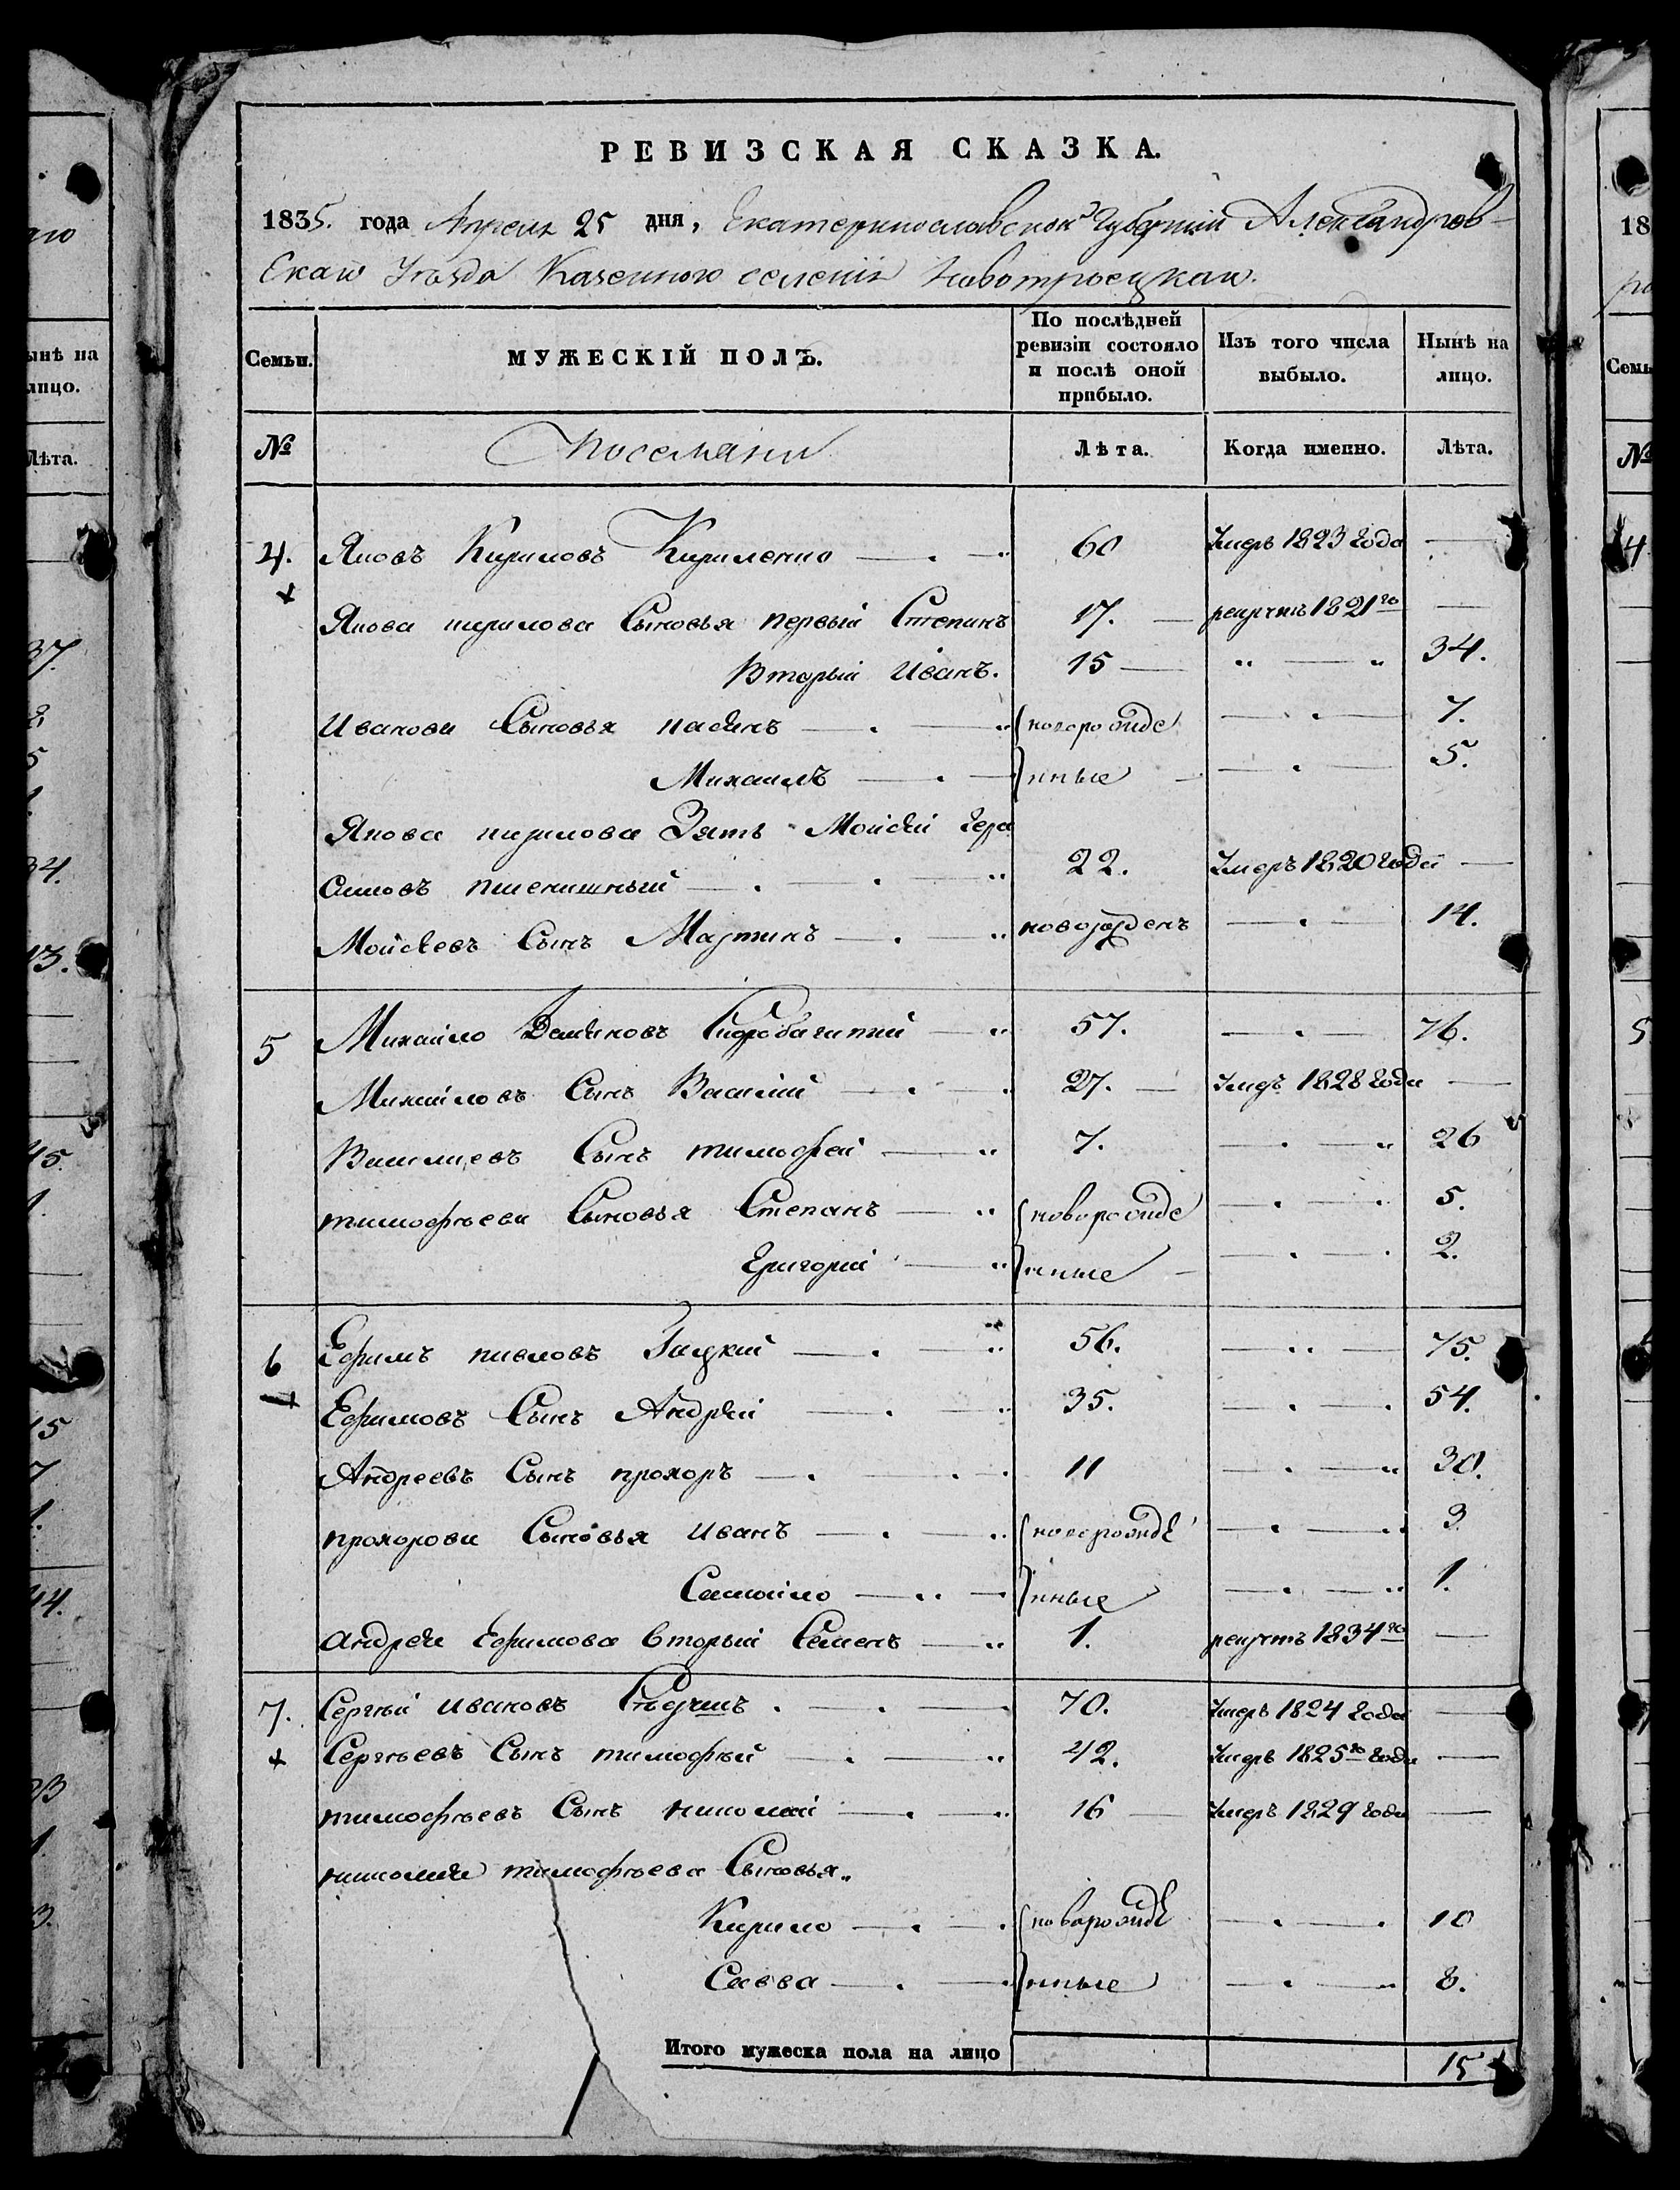 РЕВИЗСКАЯ СКАЗКА.
1835. года Апреля 25 дня, Екатеринославской Губерніи Александров-
скаго Уезда Казенного селенія Новотроецкаго.
Семьи. МУЖЕСКІЙ ПОЛЪ. По послѣдней ревизіи состояло и послѣ оной прибыло. Изъ того числа выбыло. Нынѣ на лицо.
№ Поселяни Лѣта. Когда именно. Лѣта.
4. Яковъ Кириловъ Кириленко 60 Умеръ 1823 года
Якова кирилова Сыновья первый Степанъ 17. рекрутъ 1821го
Вторый Иванъ. 15 34.
Иванови Сыновья 7.
Михаилъ новорожде нные 5.
Якова кирилова Зять Моисѣй Гера
симовъ пшенишный 22. Умеръ 1820 года
Моисѣевъ Сынъ Мартинъ новорожденъ 14.
5 Михаило 57. 76.
Михаиловъ Сынъ Василий 27. Умеръ 1828 года
Василиевъ Сынъ тимофей 7. 26
тимофѣеви Сыновья Степанъ новорожде 5.
Григорий нные 2.
6 Ефимъ павловъ 56. 75.
Ефимовъ Сынъ Андрѣй 35. 54.
Андреевъ Сынъ прохоръ 11 30.
прохорови Сыновья иванъ новорожде 3
Самойло нные 1.
андрея Ефимова вторый Семенъ 1. рекрутъ 1834го
7. Сергѣй ивановъ 70. Умеръ 1824 года
Сергѣевъ Сынъ тимофѣй 42. Умеръ 1825го года
тимофѣевъ Сынъ николай 16 Умеръ 1829 года
николая тимофѣева Сыновья
Кирило новорожде 10
Савва нные 8.
Итого мужеска пола на лицо 15